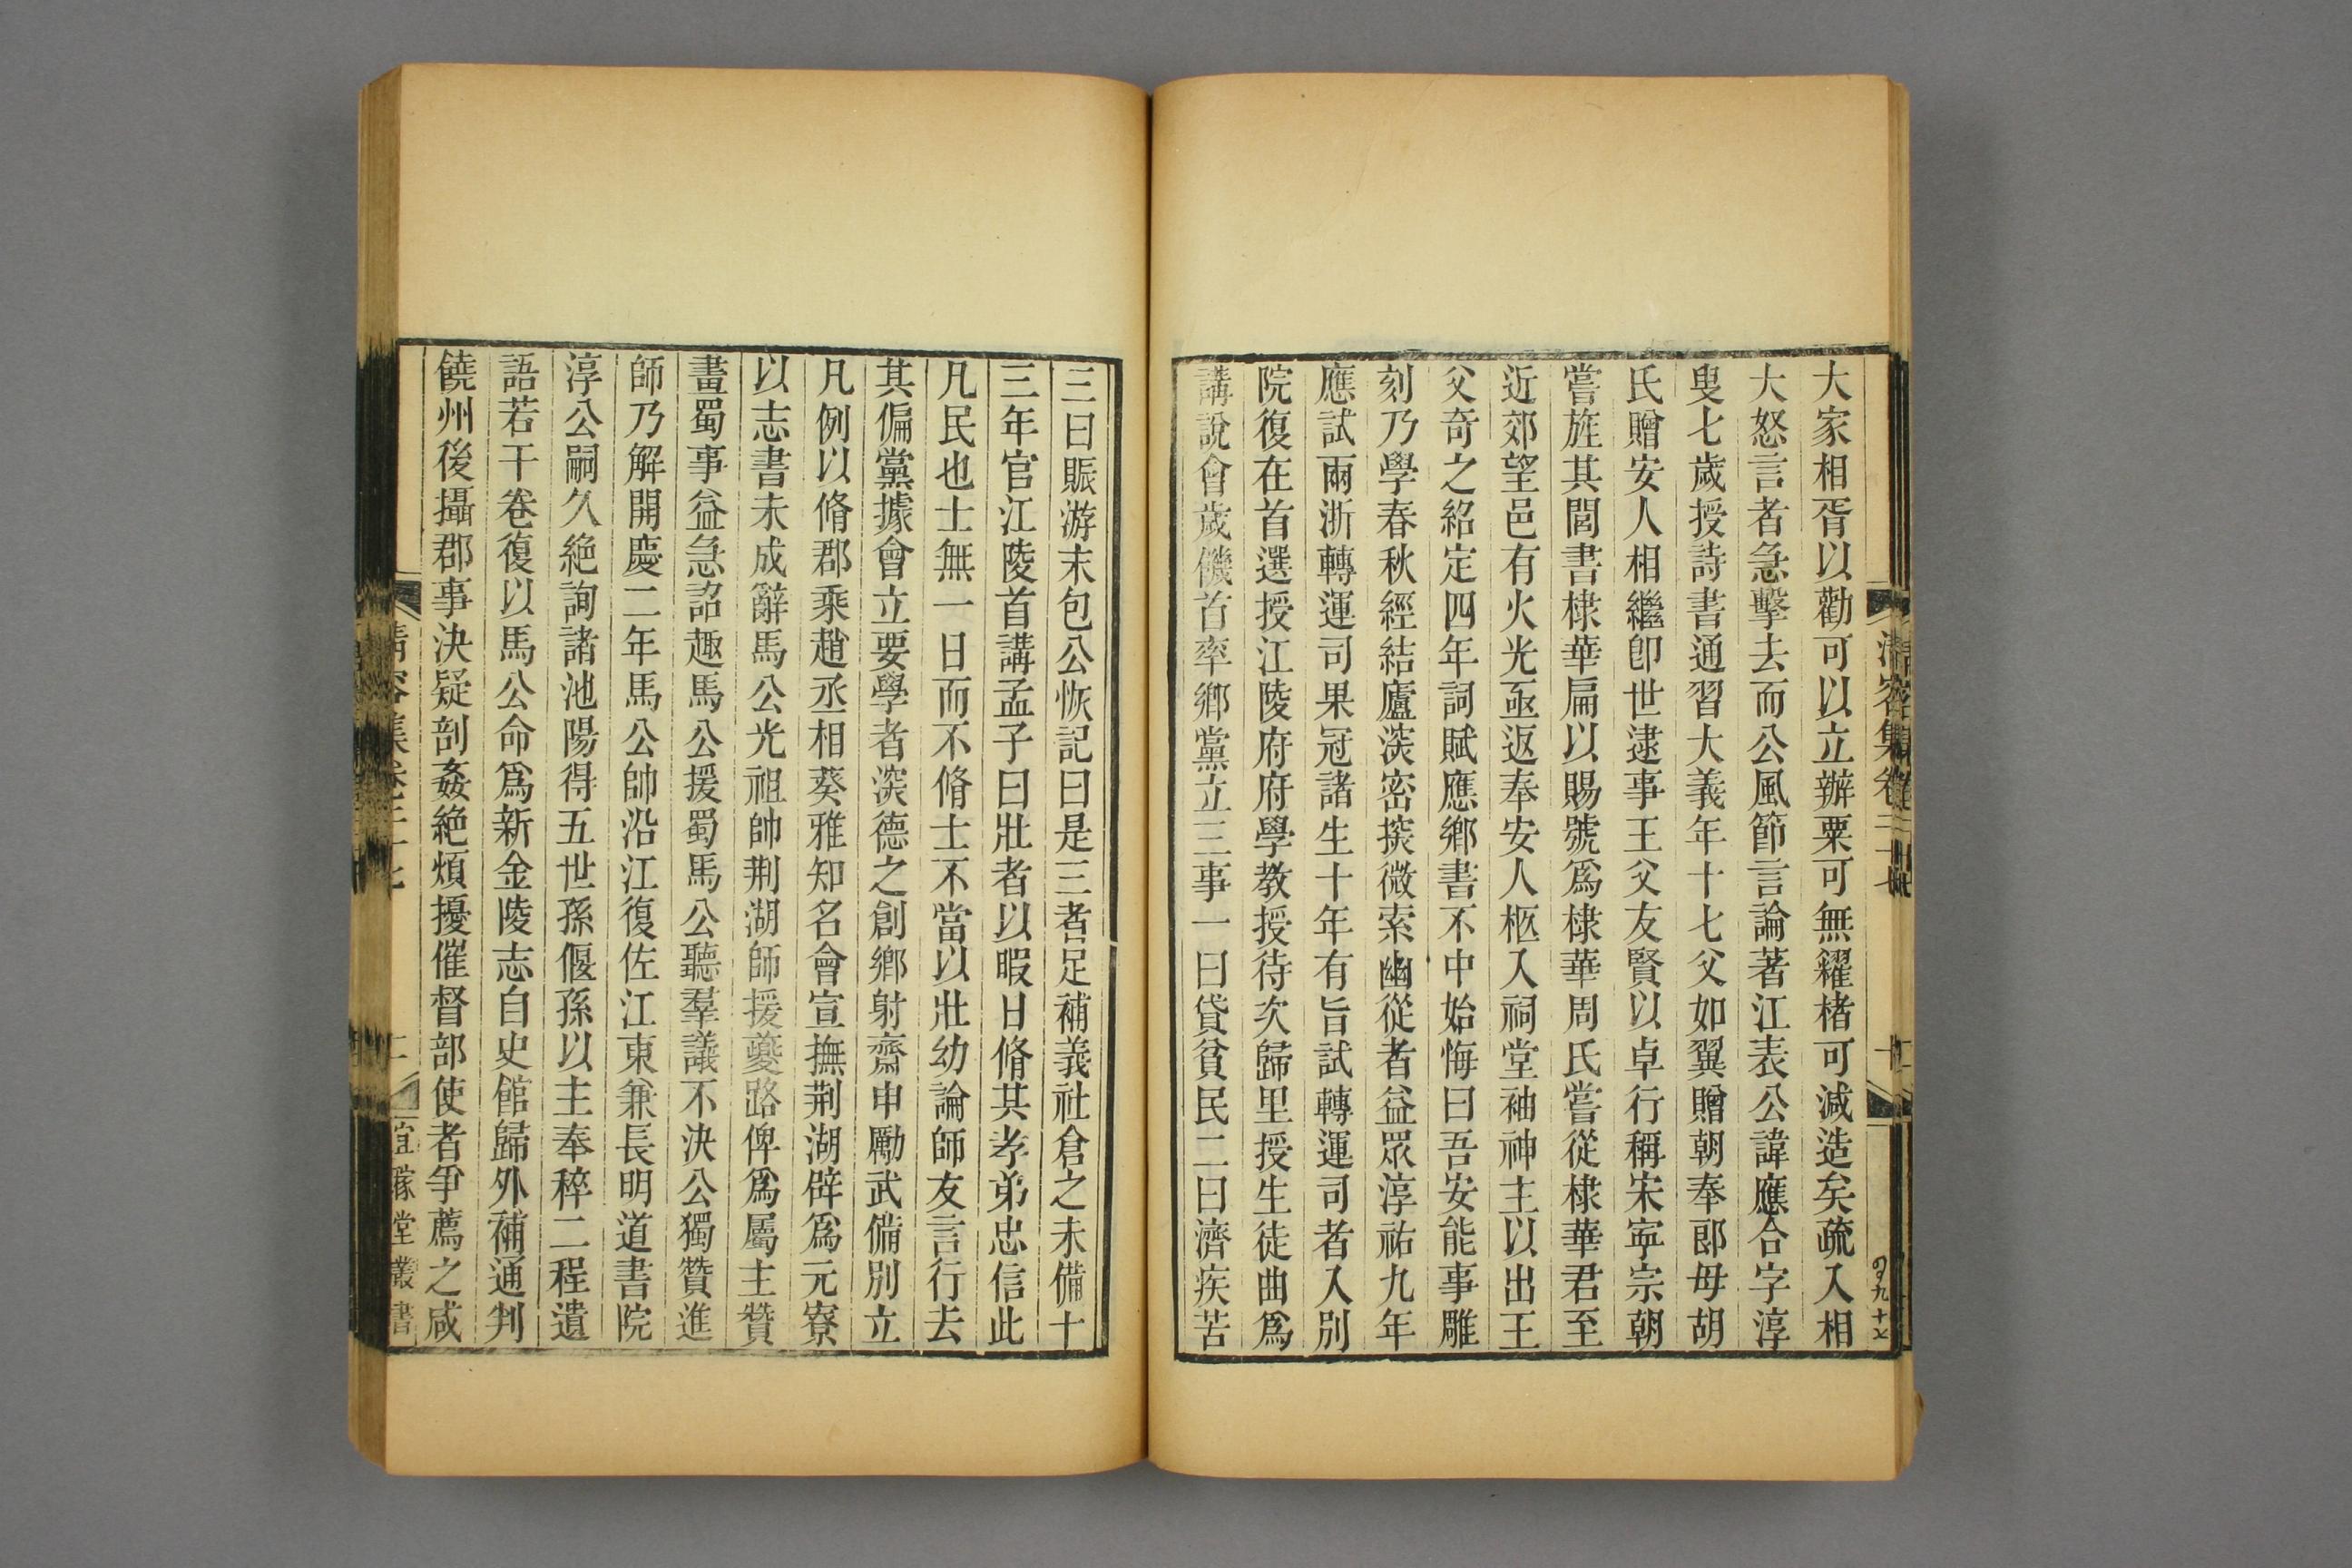 大家相胥以勸可以立辦粟可無糴楮可減造矣疏入相
大怒言者急擊去而公風節言論著江表公諱應合字淳
叟七歲授詩書通習大義年十七父如翼贈朝奉郎母胡
氏贈安人相繼卽世逮事王父友賢以卓行稱宋寧宗朝
嘗旌其閭書棣華扁以賜號爲棣華周氏嘗從棣華君至
近郊望邑有火光亟返奉安人柩入祠堂袖神主以出王
父奇之紹定四年詞賦應鄉書不中始悔曰吾安能事雕
刻乃學春秋經結廬溪密探微索幽從者益眾淳祐九年
應試兩浙轉運司果冠諸生十年有旨試轉運司者入別
院復在首選授江陵府府學教授待次歸里授生徒曲爲
講說會歲饑首率鄉黨立三事一曰貸貧民二曰濟疾苦
三曰賑游末包公恢記曰是三者足補義社倉之未備十
三年官江陵首講孟子曰壯者以暇日脩其孝弟忠信此
凡民也士無一日而不脩士不當以壯幼論師友言行去
其偏黨據會立要學者深德之創鄉射齋申勵武備別立
凡例以脩郡乘趙丞相葵雅知名會宣撫荆湖辟爲元寮
以志書未成辭馬公光祖帥荆湖師援夔路俾爲屬主贊
畫蜀事益急詔趣馬公援蜀馬公聽羣議不決公獨贊進
師乃解開慶二年馬公帥沿江復佐江東兼長明道書院
淳公嗣久絕詢諸池陽得五世孫偃孫以主奉稡二程遺
語若干卷復以馬公命爲新金陵志自史館歸外補通判
饒州後攝郡事決疑剖姦絕煩擾催督部使者爭薦之咸
清容集卷三十七
二
宜稼堂叢書